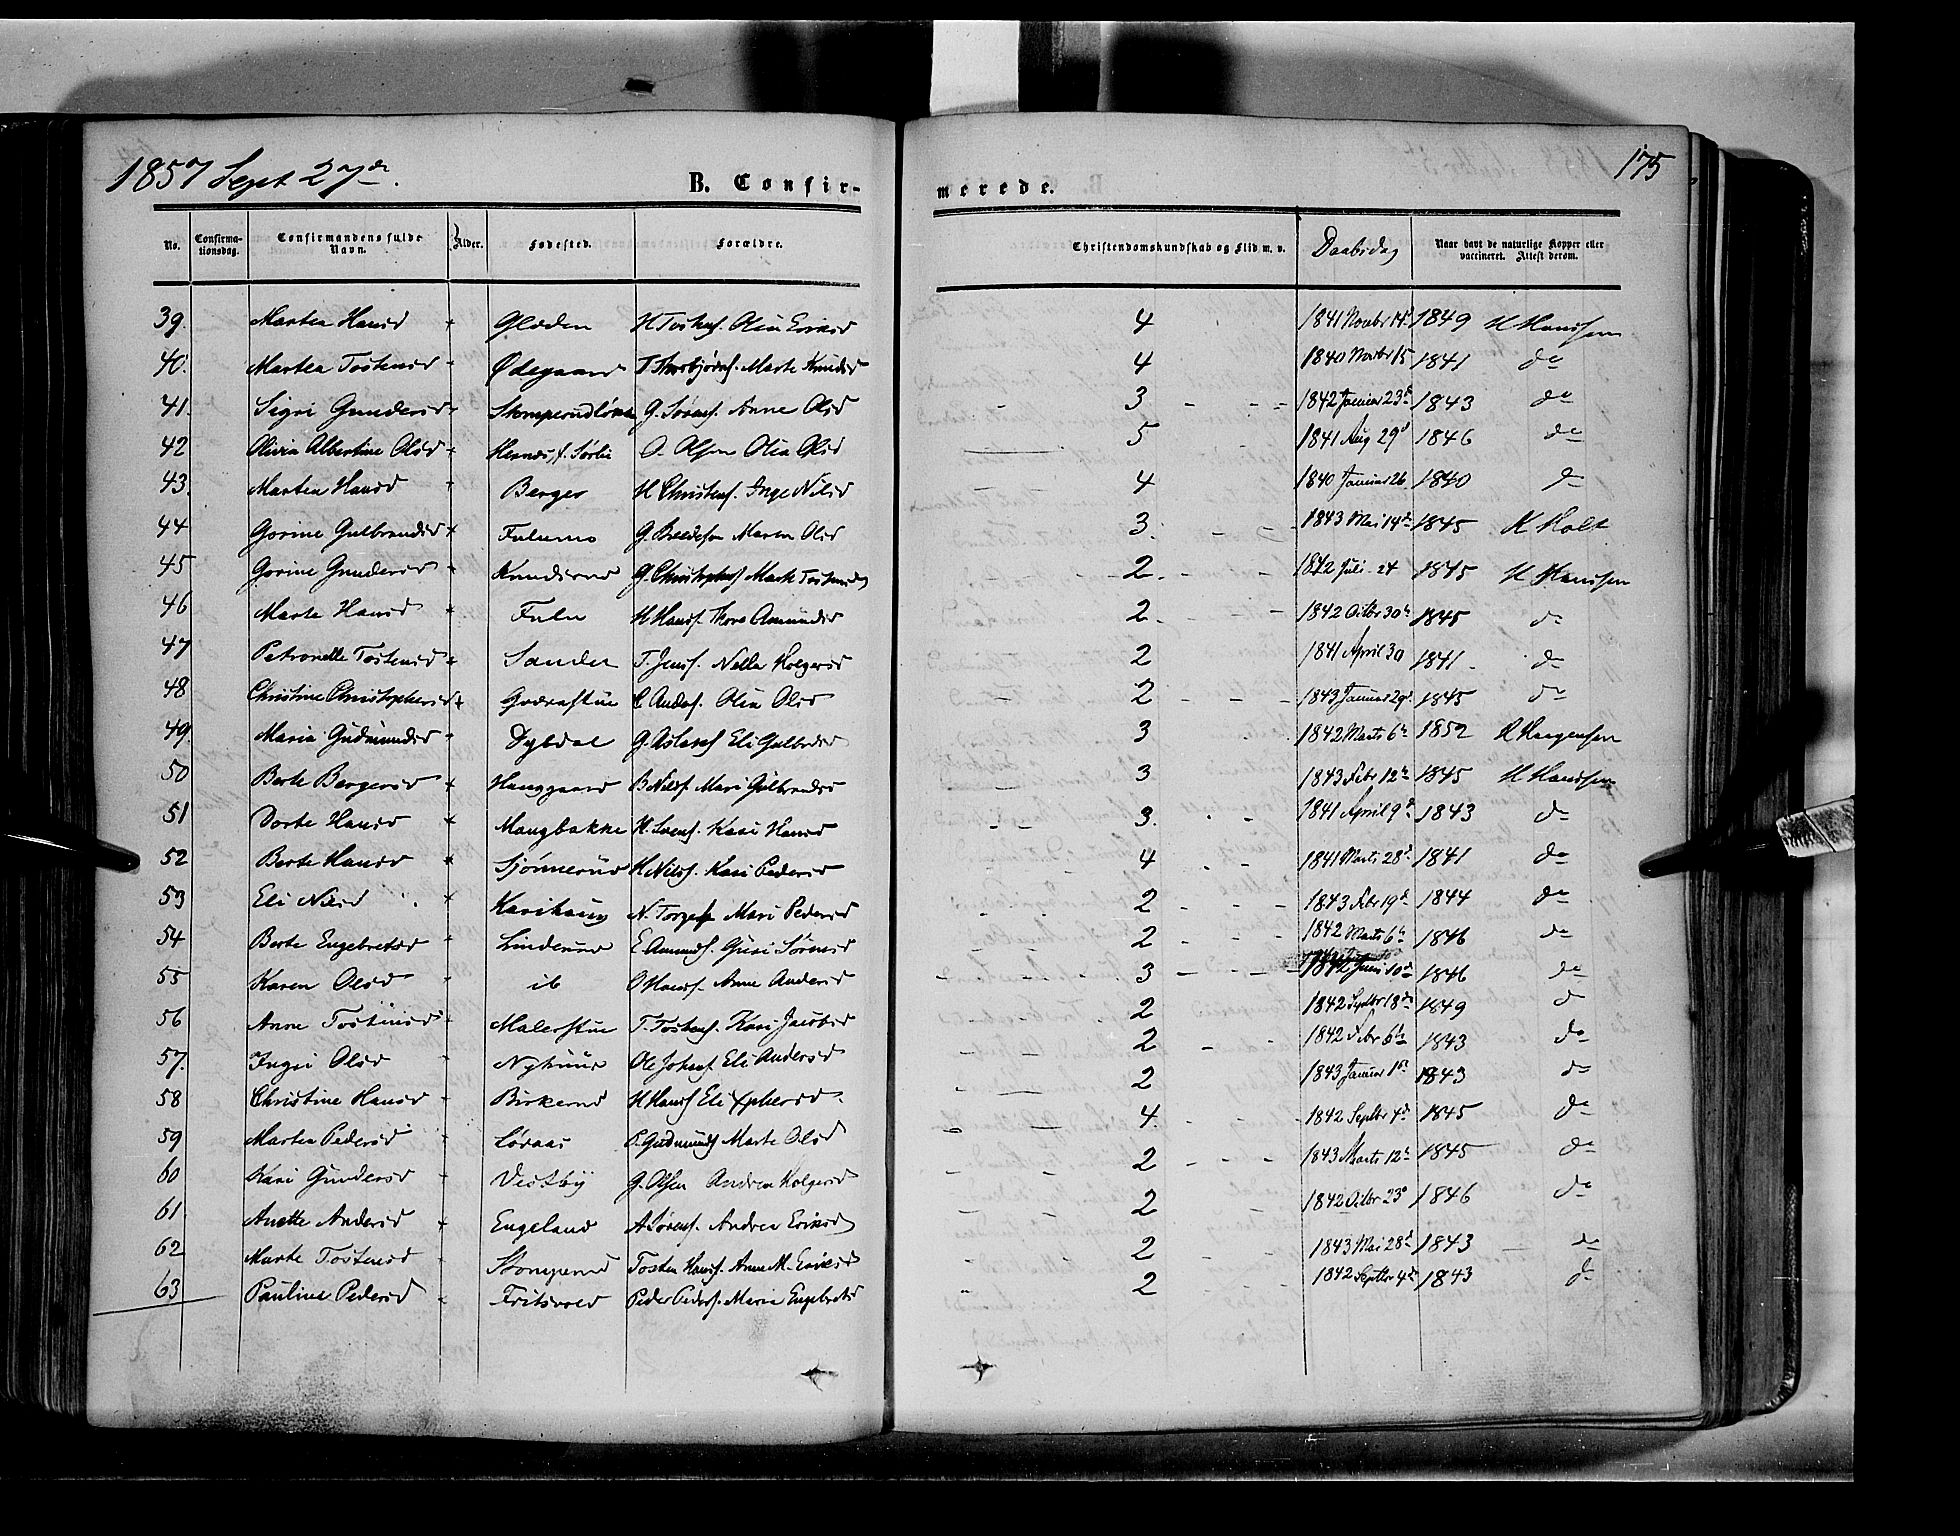 1857 Sept 27de. B. Confir- merede. 175
No. Confirmationsdag. Confirmandens fulde Navn. Alder. Fødested. Forældre. Christendomskundskab og Flid m. v. Daabsdag Naar havt de naturlige Kopper eller vaccineret. Attest derom.
39. Marthea Hansd Gloden H Tostens. Olea Eriksd 4 1841 Novbr 14d 1849 H Hanssen
40. Marthea Tostensd Ødegaard T. Thorbjørns. Marte Knudsd 4 1840 Novbr 15 1841 do
41. Sigri Gundersd G. Sørens. Anne Olsd 3 1842 Januar 23d 1843 do
42 Olivia Albertine Olsd Hernes, f. Sørlie O. Olsen Olea Olsd 5 1841 Aug 29d 1846 do
43. Marthea Hansd Berger H Christens. Inge Nilsd 4 1840 Januar 26 1840 do
44 Gorine Gulbrandsd G. Maren Olsd 3. 1843 Mai 14d 1845 H Holt
45 Gorine Gundersd Knudserud G. Christophers Marte Tostensd 2. 1842 Juli 24 1845 H Hanssen
46 Marte Hansd Fulu H Hans. Thore Amundsd 2. 1842 Octbr 30d 1845 do
47 Petronelle Tostensd Sander T. Jens. Nella Holgersd 2 1841 April 30 1841 do
48 Christine Christophersd C Anders. Olea Olsd 2 1843 Januar 29d 1845 do
49. Maria Gudmundsd Dybdal G. Aslaks Eli Gulbrdsd 3 1842 Marts 6d 1852 H Haagensen
50 Berte Bergersd Hauggaard B Nils. Mari Gulbrandsd 3 1843 Febr 12d 1845 H Hanssen
51 Dorte Hansd Haugbakke H. Svens. Kari Hansd 3. 1841 April 9d 1843 do
52 Berte Hansd Sjønnerud H Nils. Kari Pedersd 4 1841 Marts 28d 1841 do
53 Eli Nilsd Karihaug N. Torgers Mari Pedersd 2 1843 Febr 19d 1844 do
54 Berte Engebretsd Linderud E Amunds. Guri Sørensd 2 1842 Marts 6d 1846 do
55 Karen Olsd ib O Hans. Anne Andersd 3 1842 Juni 10d 1846 do
56 Anne Tostensd Malerstue T. Tostens. Kari Jacobsd 2 1842 Septbr 18de 1849 do
57. Ingri Olsd Nyhuus Ole Johans. Eli Andersd 2 1842 Febr 6te 1843 do
58 Christine Hansd Birkerud H Hans. Eli Xphersd. 2 1843 Januar 1st 1843 do
59 Marthea Pedersd Løvaas P. Gudmunds Marte Olsd 4. 1842 Septbr 4d 1845 do
60 Kari Gundersd Vestby G. Olsen Andrea Holgersd 2 1843 Marts 12te 1845 do
61. Anette Andersd Engeland A Sørens. Andrea Eriksd 2 1842 Octbr 23d 1846 do
62 Marte Tostensd Stomperud Tosten Hans. Anne M. Eriksd 2 1843 Mai 28d 1843 do
63 Pauline Pedersd Fritsvold Peder Peders. Maria Engebretsd 2 1842 Septbr 4d 1843 do